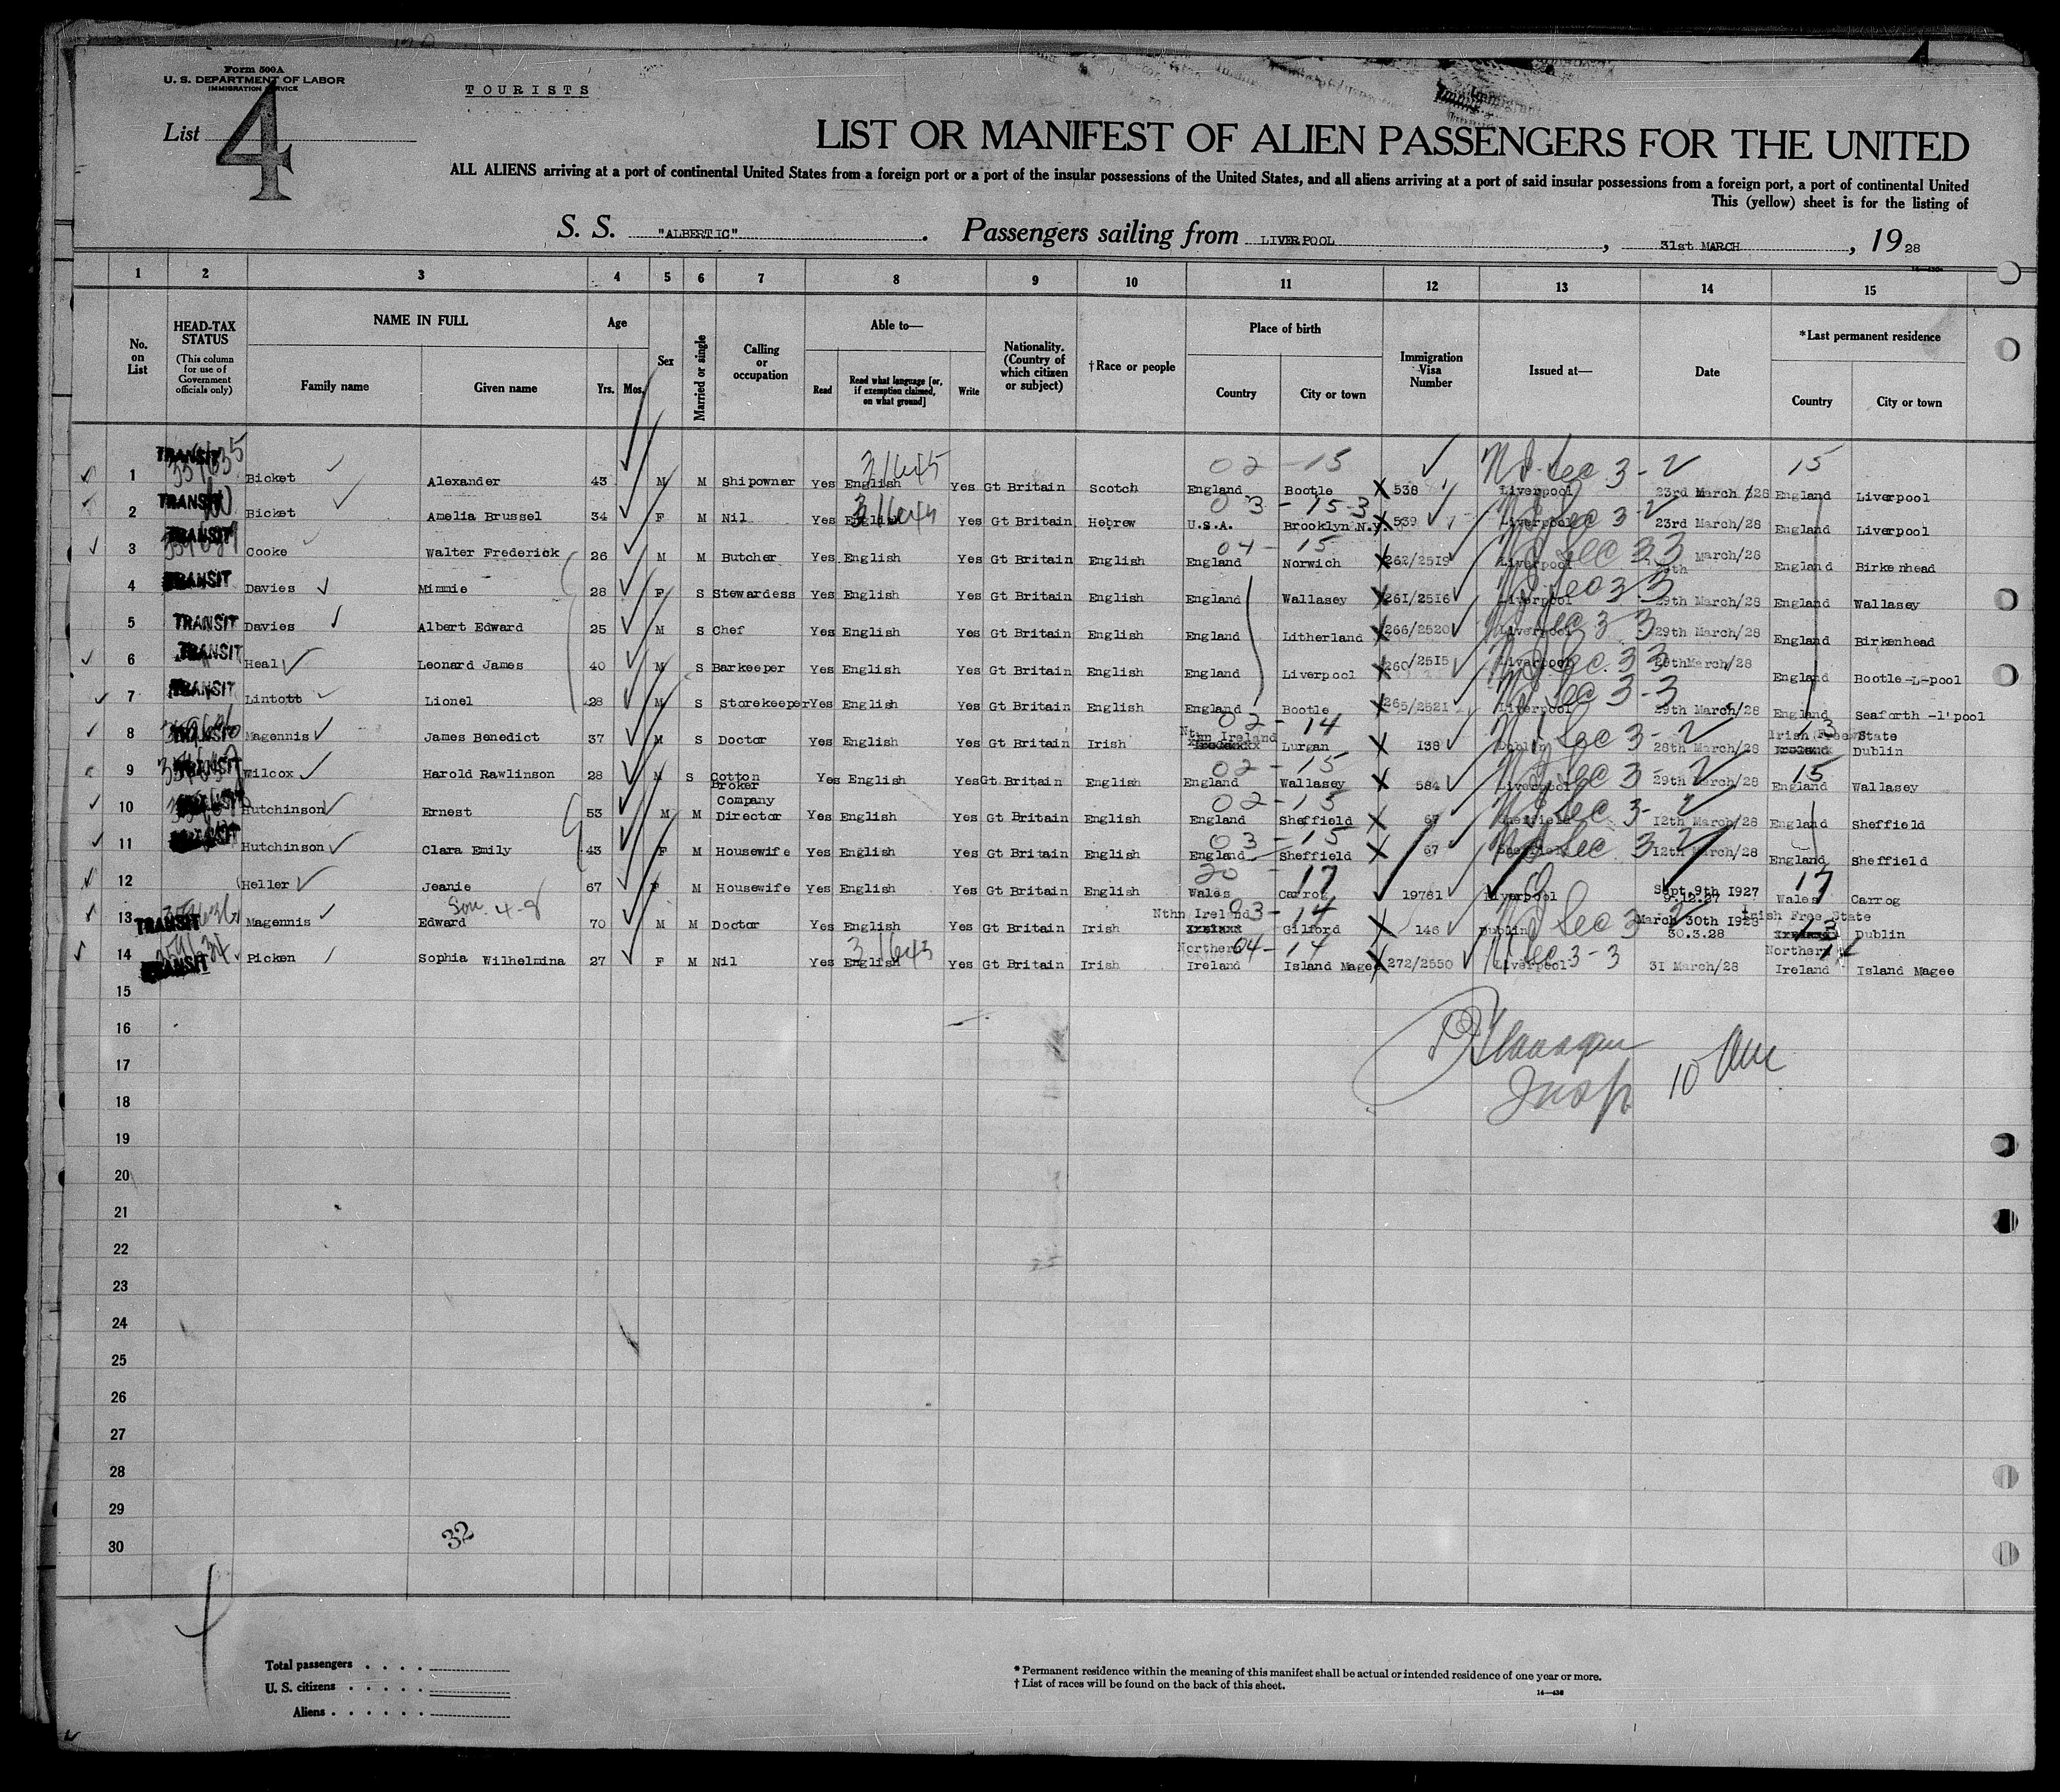 Form 500A
U. S. DEPARTMENT OF LABOR
IMMIGRATION SERVICE
TOURISTS
List 4
LIST OR MANIFEST OF ALIEN PASSENGERS FOR THE UNITED
ALL ALIENS arriving at a port of continental United States from a foreign port or a port of the insular possessions of the United States, and all aliens arriving at a port of said insular possessions from a foreign port, a port of continental United
This (yellow) sheet is for the listing of
S. S. "ALBERTIC". Passengers sailing from LIVERPOOL, 31st MARCH, 1928
1 2 3 4 5 6 7 8 9 10 11 12 13 14 15
No. on List
HEAD-TAX STATUS (This column for use of Government officials only)
NAME IN FULL Family name Given name
Age Yrs. Mos.
Sex
Married or single
Calling or occupation
Able to— Read Read what language [or, if exemption claimed, on what ground] Write
Nationality. (Country of which citizen or subject)
†Race or people
Place of birth Country City or town
Immigration Visa Number
Issued at—
Date
*Last permanent residence Country City or town
02 - 15 15
1 TRANSIT Bicket Alexander 43 M M Shipowner Yes English Yes Gt Britain Scotch England Bootle 538 Liverpool 23rd March /28 England Liverpool
03 - 15-3
2 TRANSIT Bicket Amelia Brussel 34 F M Nil Yes English Yes Gt Britain Hebrew U.S.A. Brooklyn N.Y. 539 Liverpool 23rd March/28 England Liverpool
04 - 15
3 TRANSIT Cooke Walter Frederick 26 M M Butcher Yes English Yes Gt Britain English England Norwich 262/2519 Liverpool March/28 England Birkenhead
4 TRANSIT Davies Minnie 28 F S Stewardess Yes English Yes Gt Britain English England Wallasey 261/2516 Liverpool 29th March/28 England Wallasey
5 TRANSIT Davies Albert Edward 25 M S Chef Yes English Yes Gt Britain English England Litherland 266/2520 Liverpool 29th March/28 England Birkenhead
6 TRANSIT Heal Leonard James 40 M S Barkeeper Yes English Yes Gt Britain English England Liverpool 260/2515 Liverpool 29thMarch/28 England Bootle-L-pool
7 TRANSIT Lintott Lionel 28 M S Storekeeper Yes English Yes Gt Britain English England Bootle 265/2521 Liverpool 29th March/28 England Seaforth -l'pool
02 - 14
8 TRANSIT Magennis James Benedict 37 M S Doctor Yes English Yes Gt Britain Irish Nthn Ireland Lurgan 138 Dublin 28th March/28 Irish Free State Ireland Dublin
02 - 15 15
9 TRANSIT Wilcox Harold Rawlinson 28 M S Cotton Broker Yes English Yes Gt Britain English England Wallasey 584 Liverpool 29th March/28 England Wallasey
02 - 15
10 Hutchinson Ernest 53 M M Company Director Yes English Yes Gt Britain English England Sheffield 67 Sheffield 12th March/28 England Sheffield
03 - 15
11 Hutchinson Clara Emily 43 F M Housewife Yes English Yes Gt Britain English England Sheffield 67 Sheffield 12th March/28 England Sheffield
20 - 17 17
12 Heller Jeanie 67 F M Housewife Yes English Yes Gt Britain English Wales Carrog 19781 Liverpool Sept 9th 1927 9.12.27 Wales Carrog
03 - 14
13 TRANSIT Magennis Edward 70 M M Doctor Yes English Yes Gt Britain Irish Nthn Ireland Gilford 146 Dublin March 30th 1928 30.3.28 Irish Free State Dublin
04 - 14
14 TRANSIT Picken Sophia Wilhelmina 27 F M Nil Yes English Yes Gt Britain Irish Northern Ireland Island Magee 272/2550 Liverpool 31 March/28 Northern Ireland Island Magee
15
16
17
18
19
20
21
22
23
24
25
26
27
28
29
30
Insp 10
32
Total passengers
U. S. citizens
Aliens
* Permanent residence within the meaning of this manifest shall be actual or intended residence of one year or more.
† List of races will be found on the back of this sheet.